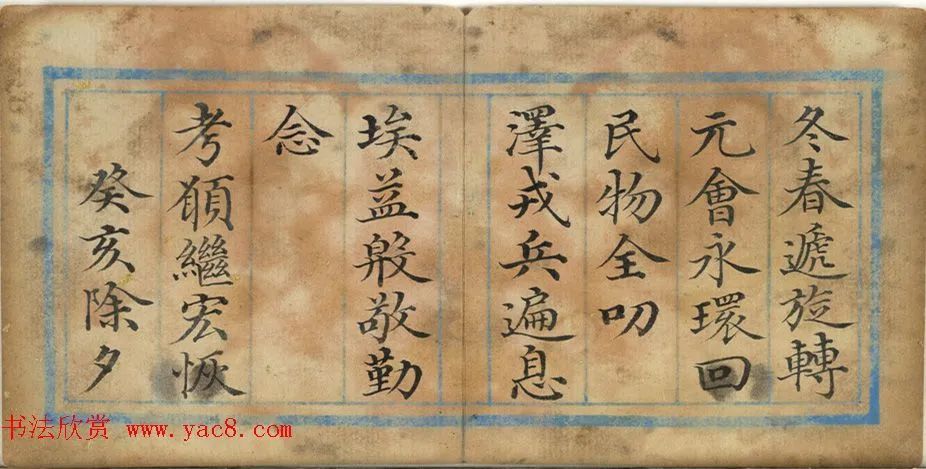 冬春遞旋轉
元會永環回
民物全叨
澤戎兵遍息
埃益殷敬勤
念
考願繼宏恢
癸亥除夕
书法欣赏 www.yac8.com